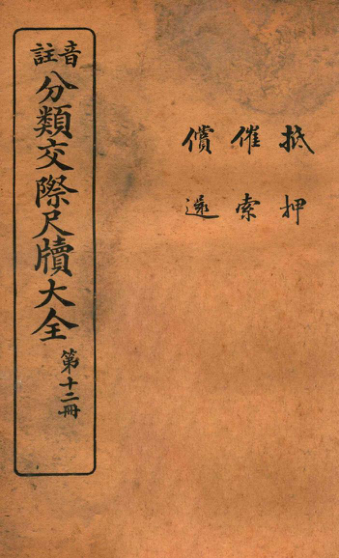 抵押
催索
償還
音註
分類交際尺牘大全
第十二冊